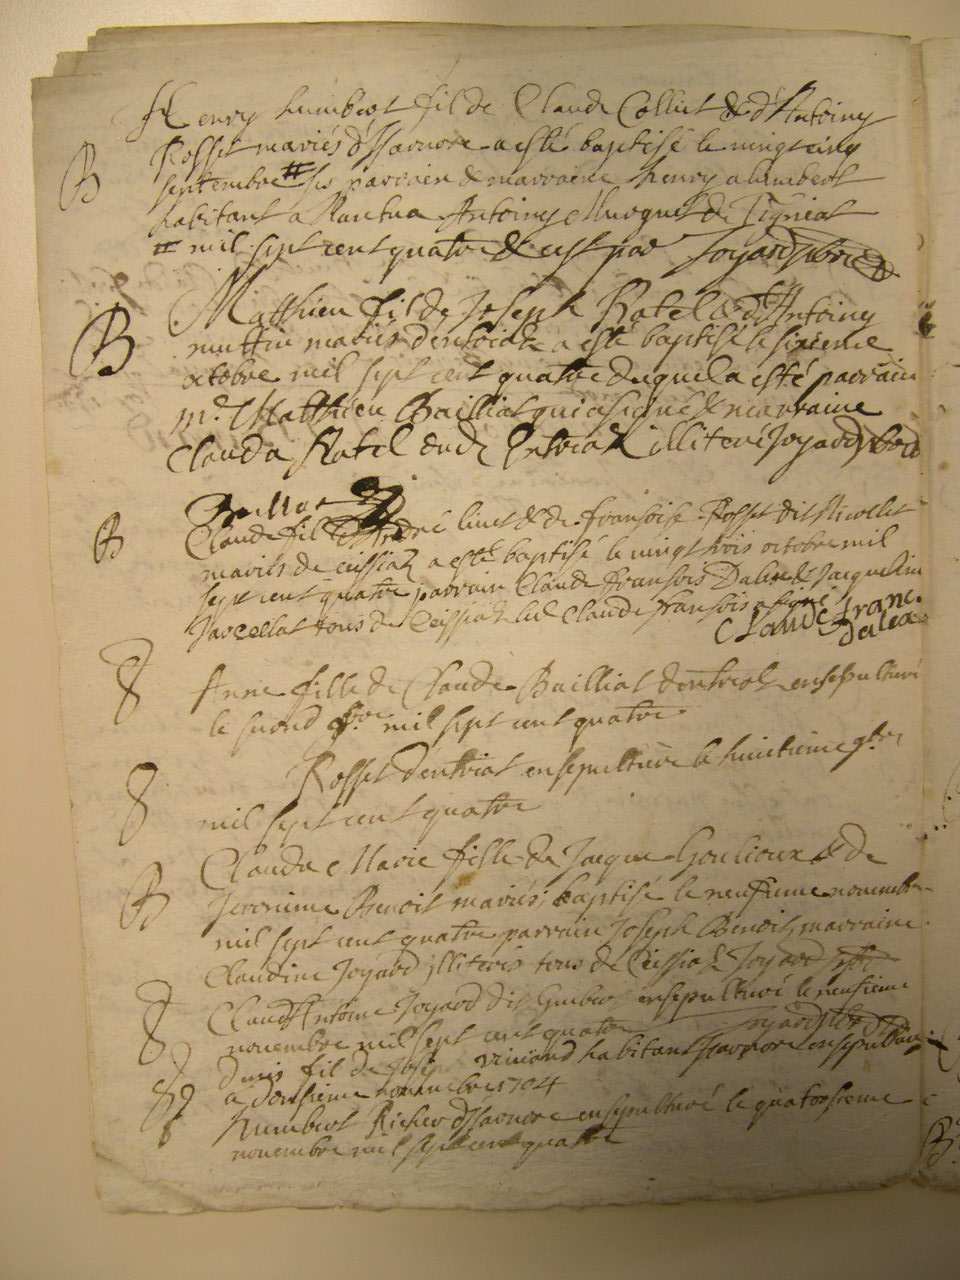 Henry humbert fil de Claude Colliet & d'Antoiny
B Rosset mariés d'Isarnore a esté baptisé le vingt cinq
septembre # ses parrain & marraine henry a humbert
habitant a Nantua Antoiny Murguet de Tignat
# mil sept cent quatre & c'est par Joyard vbic
Matthieu fil de Joseph Ratel & d'Antoiny
B muttin mariés d'entriat a esté baptisé le sixieme
octobre mil sept cent quatre duquel a esté parrain
mr Matthieu Bailliat qui a signé & marraine
Clauda Ratel aud Entriat illiteré Joyard
Bailliat
B Claude fil d'André livet & de fransoise Rosset dit Nicollet
mariés de ceissiat a esté baptisé le vingt trois octobre mil
sept cent quatre parrain Claude fransois Dalin & Jacqueline
Jarcellat tous de Ceissiat led Claude fransois a signé
Claude franc.
S Anne fille de Claude Bailliat dentriat ensepulturé
le second 9bre mil sept cent quatre
S Rosset dentriat ensepulturé le huitieme 9bre
mil sept cent quatre
Clauda Marie fille de Jacque Goulioux & de
B Jeronime Benoit mariés, baptisé le neufieme novembre
mil sept cent quatre parrain Joseph Benoit, marraine
Claudine Joyard illiterés tous de Ceissiat Joyard
S Claud Antoine Joyard dit Gubert ensepulturé le neufieme
novembre mil sept cent quatre Joyard
S Denis fil de Josep vinand habitant Isarnore ensepulturé
a donsieme novembre 1704
S humbert Richer d'Isarnore ensepulturé le quatorsieme
novembre mil sept cent quatre